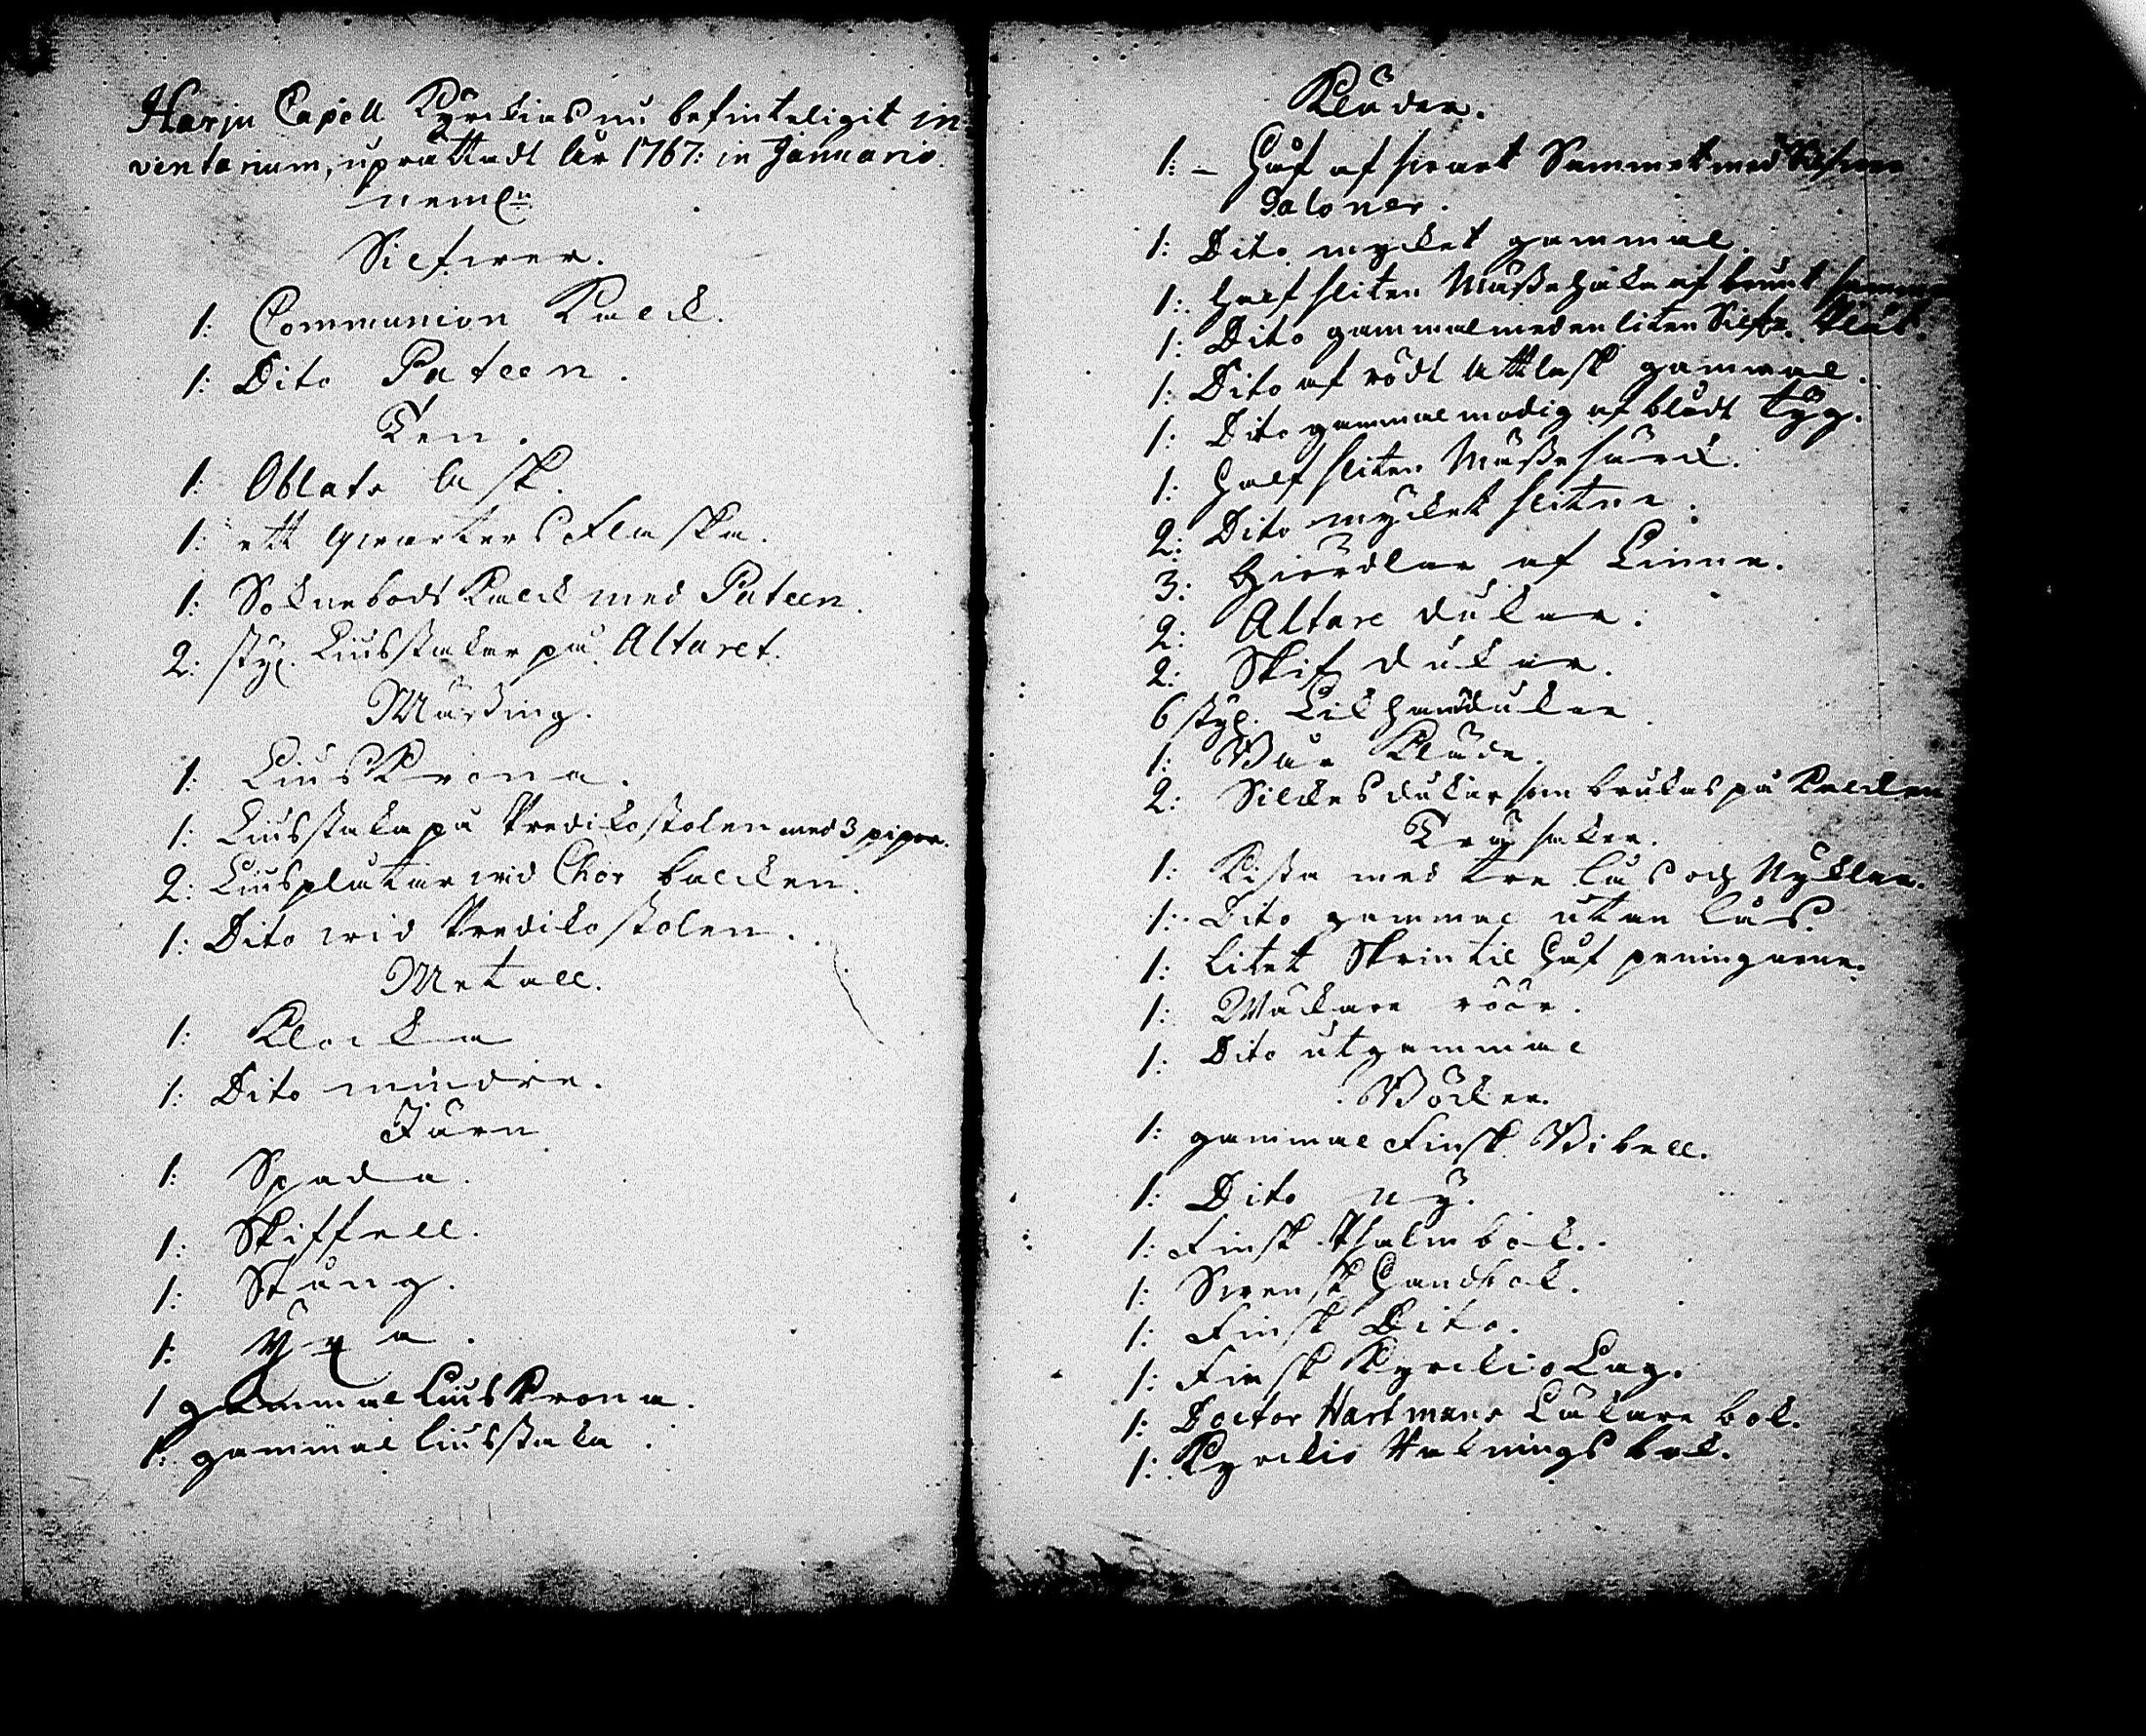 Harju Capell Kyrckias nu befinteligit in-
ventarium, uprättadt År 1767: in Januario.
neml:n
Silfwer.
1: Communion Kalck.
1: Dito Pateen.
Ten.
1: Oblats Ask.
1: ett qwarters Flaska.
1: Soknebods Kalck med Pateen.
2: styc. Liusstakar på Altaret.
Mässing.
1: Lius Krona.
1: Liusstaka på Predikostolen med 3 pipor.
2: Liusplåtar wid Chor balcken.
1: Dito wid Predikostolen.
Metall.
1: Klocka
1: Dito mindre.
Järn
1: Spada.
1: Skiffell.
1: Stång.
1: Yxa.
1 gammal Lius Krona.
1: gammal liusstaka.
Kläder.
1: - Håf af swart Sammet med
Galoner.
1: Dito mycket gammal.
1: Half sliten Mässehake af brunt
1: Dito gammal med en liten Silfr. Plåt.
1: Dito af rödt Attlask gammal.
1: Dito gammalmodig af blådt Tyg.
1: Half sliten Mässesärck.
2: Dito mycket slitne.
3: Giördlar af Linne.
2: Altare dukar.
2: Skif dukar.
6 styc. Lik handdukar.
1: Bår Kläde.
2: Silckes dukar som brukas på Kalcken
Trä saker.
1: Kista med tre lås och Nycklar.
1: Dito gammal utan lås.
1: Litet Skrin til Håf peningarne.
1: Wäckare röör.
1: Dito utgammal
Böcker.
1: gammal Finsk Bibell.
1: Dito ny.
1: Finsk Psalmbok.
1: Swensk Handbok.
1: Finsk Dito.
1: Finsk Kyrckio Lag.
1: Doctor Hartmans Läkare bok.
1: Kyrckio Räknings bok.